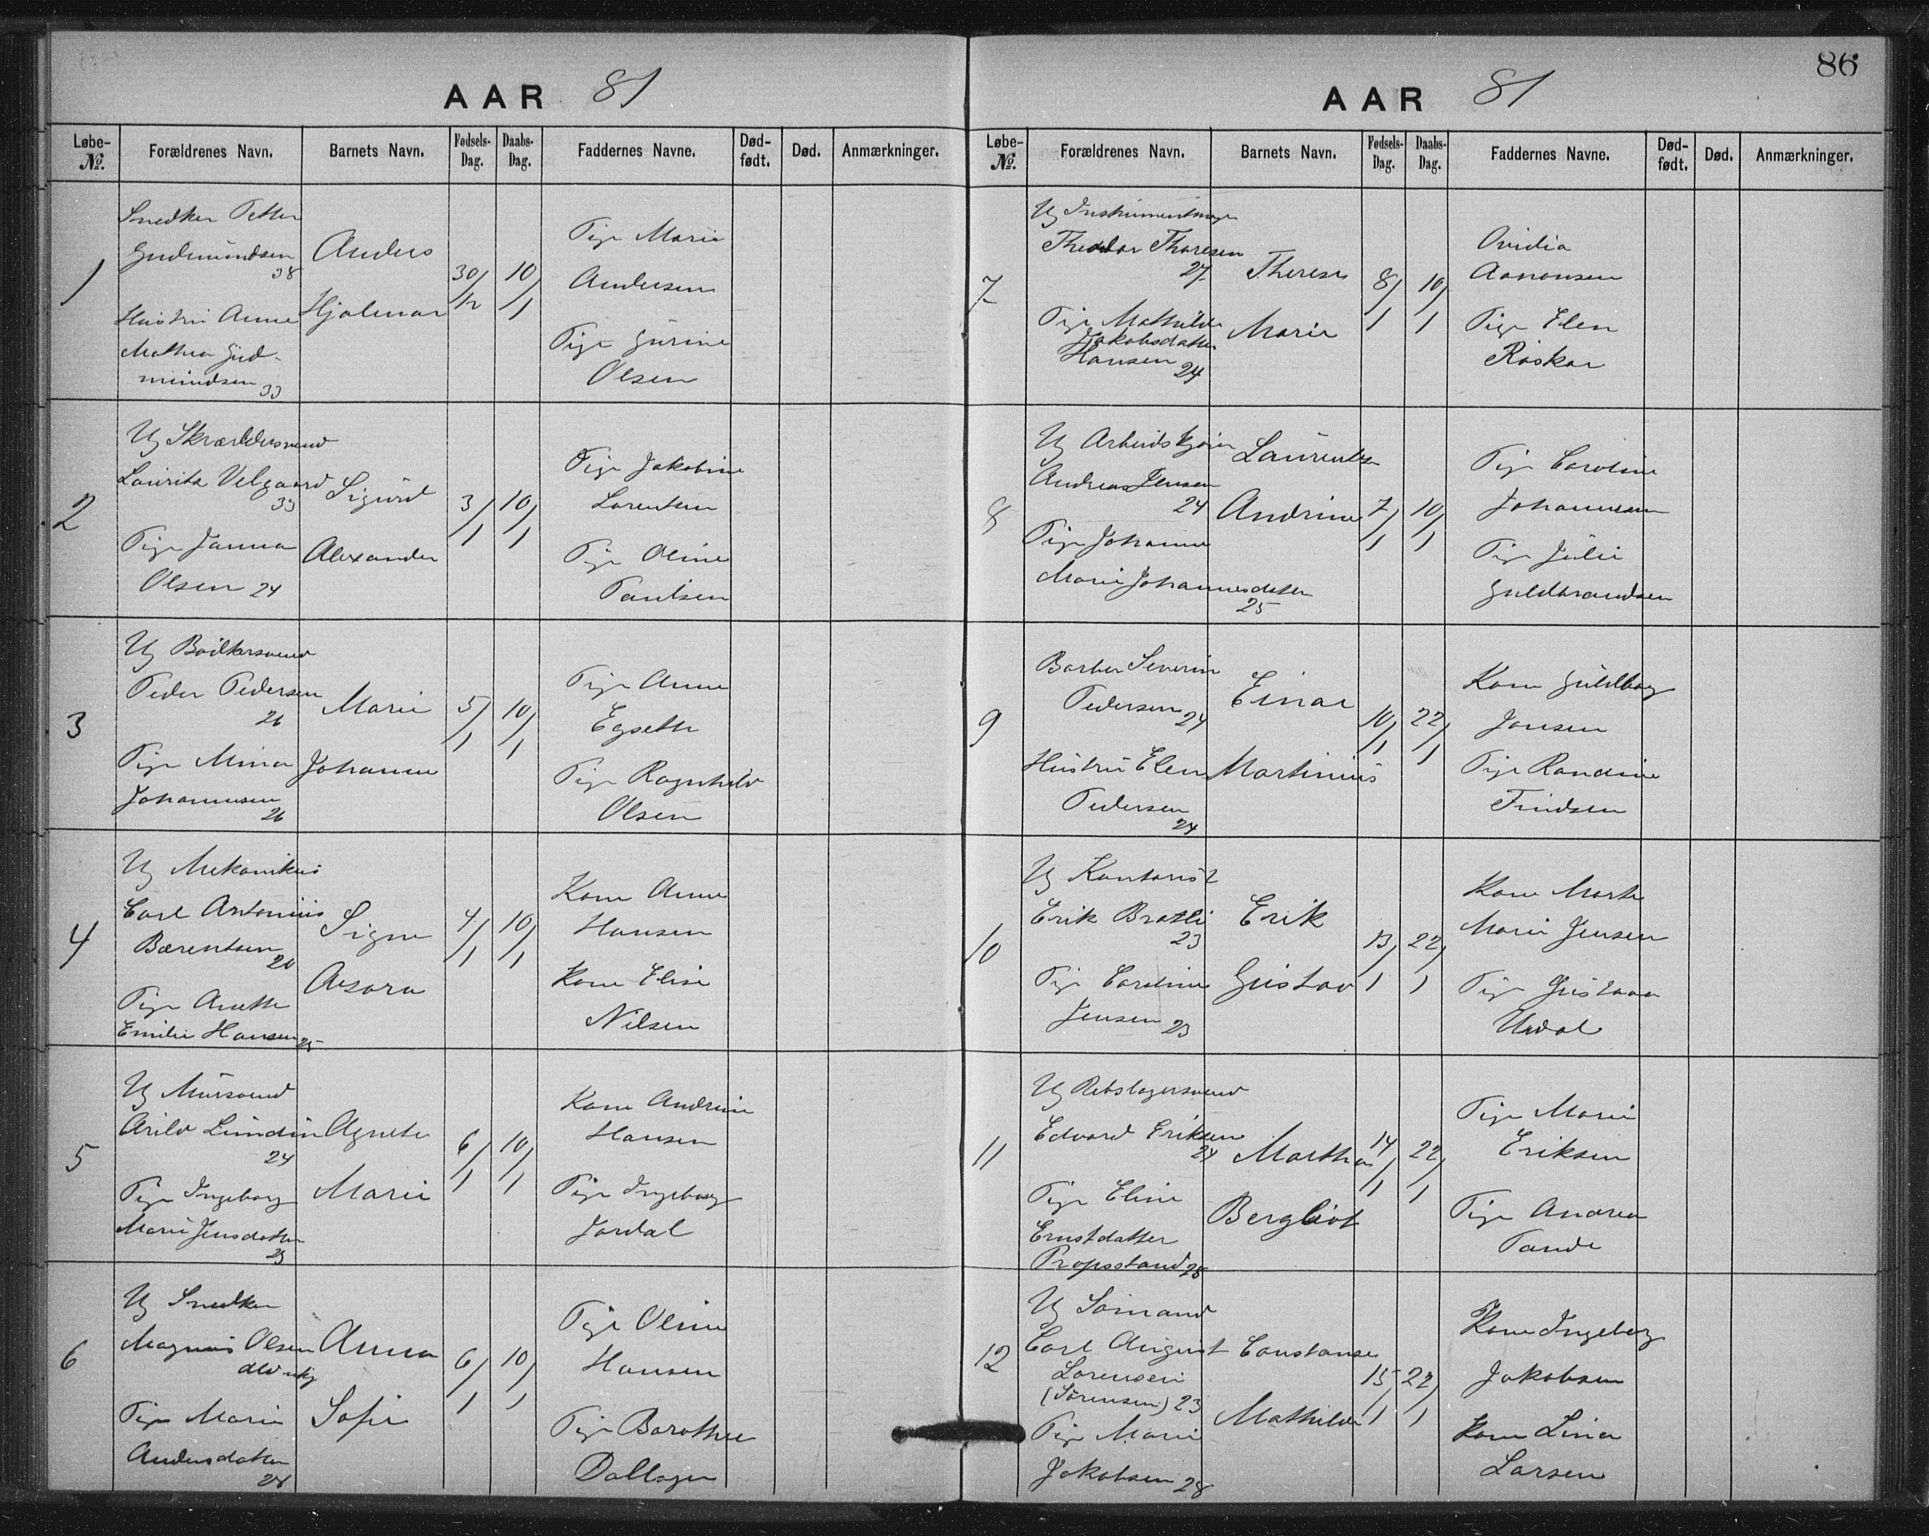 86
AAR 81
Løbe-№.
Forældrenes Navn.
Barnets Navn.
Fødsels-Dag.
Daabs-Dag.
Faddernes Navne.
Død-født.
Død.
Anmærkninger.
1
Snedker Petter
Gudmundsen
38
Hustru Anne
Mathea Gud-
mundsen 33
Anders
Hjalmar
30/12
10/1
Pige Marie
Andersen
Pige Gurine
Olsen
2
Ug Skræddersvend
Lauritz Velgaard
33
Pige Janna
Olsen 24
Sigurd
Alexander
3/1
10/1
Pige Jakobine
Lorentsen
Pige Oline
Paulsen
3
Ug Bødkersvend
Peder Pedersen
26
Pige Mina
Johannesen
26
Marie
Johanne
5/1
10/1
Pige Anne
Egseth
Pige Ragnhild
Olsen
4
Ug Mekanikus
Carl Antonius
Bærentsen
20
Pige Anette
Emilie Hansen 25
Signe
Asora
4/1
10/1
Kone Anne
Hansen
Kone Elise
Nilsen
5
Ug Mursvend
Arild Lundin
24
Pige Ingeborg
Marie Jensdatter
23
Agnete
Marie
6/1
10/1
Kone Andrine
Hansen
Pige Ingeborg
Jordal
6
Ug Snedker
Magnus Olsen
Pige Marie
Andersdatter
24
Anna
Sofie
6/1
10/1
Pige Oline
Hansen
Pige Barothee
Dallager
AAR 81
Løbe-№.
Forældrenes Navn.
Barnets Navn.
Fødsels-Dag.
Daabs-Dag.
Faddernes Navne.
Død-født.
Død.
Anmærkninger.
7
Ug Instrumentmager
Theodor Thoresen
27
Pige Mathilde
Jakobsdatter
Hansen 24
Therese
Marie
8/1
10/1
Ovidia
Aanonsen
Pige Elen
Røskar
8
Ug Arbeidskjører
Andreas Jensen
24
Pige Johanne
Marie Johannesdatter
25
Laurentze
Andrine
7/1
10/1
Pige Caroline
Johannesen
Pige Julie
Guldbrandsen
9
Barber Severin
Pedersen 24
Hustru Elen
Pedersen
24
Einar
Martinius
10/1
22/1
Kone Guldborg
Jonsen
Pige Randine
Findsen
10
Ug Kontorist
Erik Bratli
23
Pige Caroline
Jensen 23
Erik
Gustav
13/1
22/1
Kone Marte
Marie Jensen
Pige Gustava
Urdal
11
Ug Rebslagersvend
Edvard Eriksen
24
Pige Eline
Ernstdatter
Propsstand 25
Martha
Bergliot
14/1
22/1
Pige Marie
Eriksen
Pige Andrea
Tande
12
Ug Sømand
Carl August
Lorensen
(Sørensen) 23
Pige Marie
Jakobsen 28
Constanse
Mathilde
15/1
22/1
Kone Ingeborg
Jakobsen
Kone Lina
Larsen